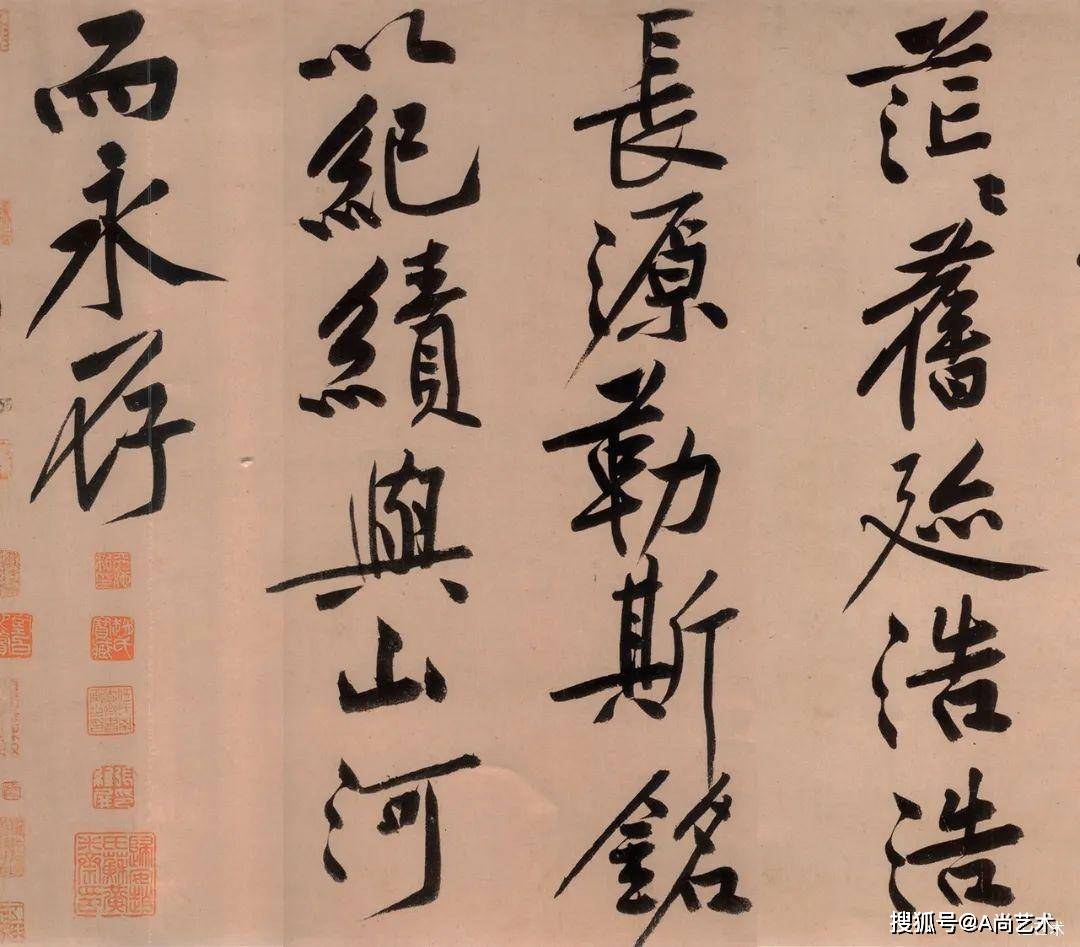 茫〻舊迹浩浩
長源勒斯銘
以紀績與山河
而永存
搜狐号@A尚艺术